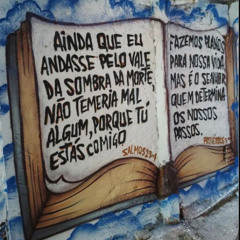 AINDA QUE EU
ANDASSE PELO VALE
DA SOMBRA DA MORTE,
NÃO TEMERIA MAL
ALGUM, PORQUE TÚ
ESTAS COMIGO
SALMOS 23:4
FAZEMOS PLANOS
PARA NOSSA VIDA,
MAS É O SENHOR
QUEM DETERMINA
OS NOSSOS
PASSOS.